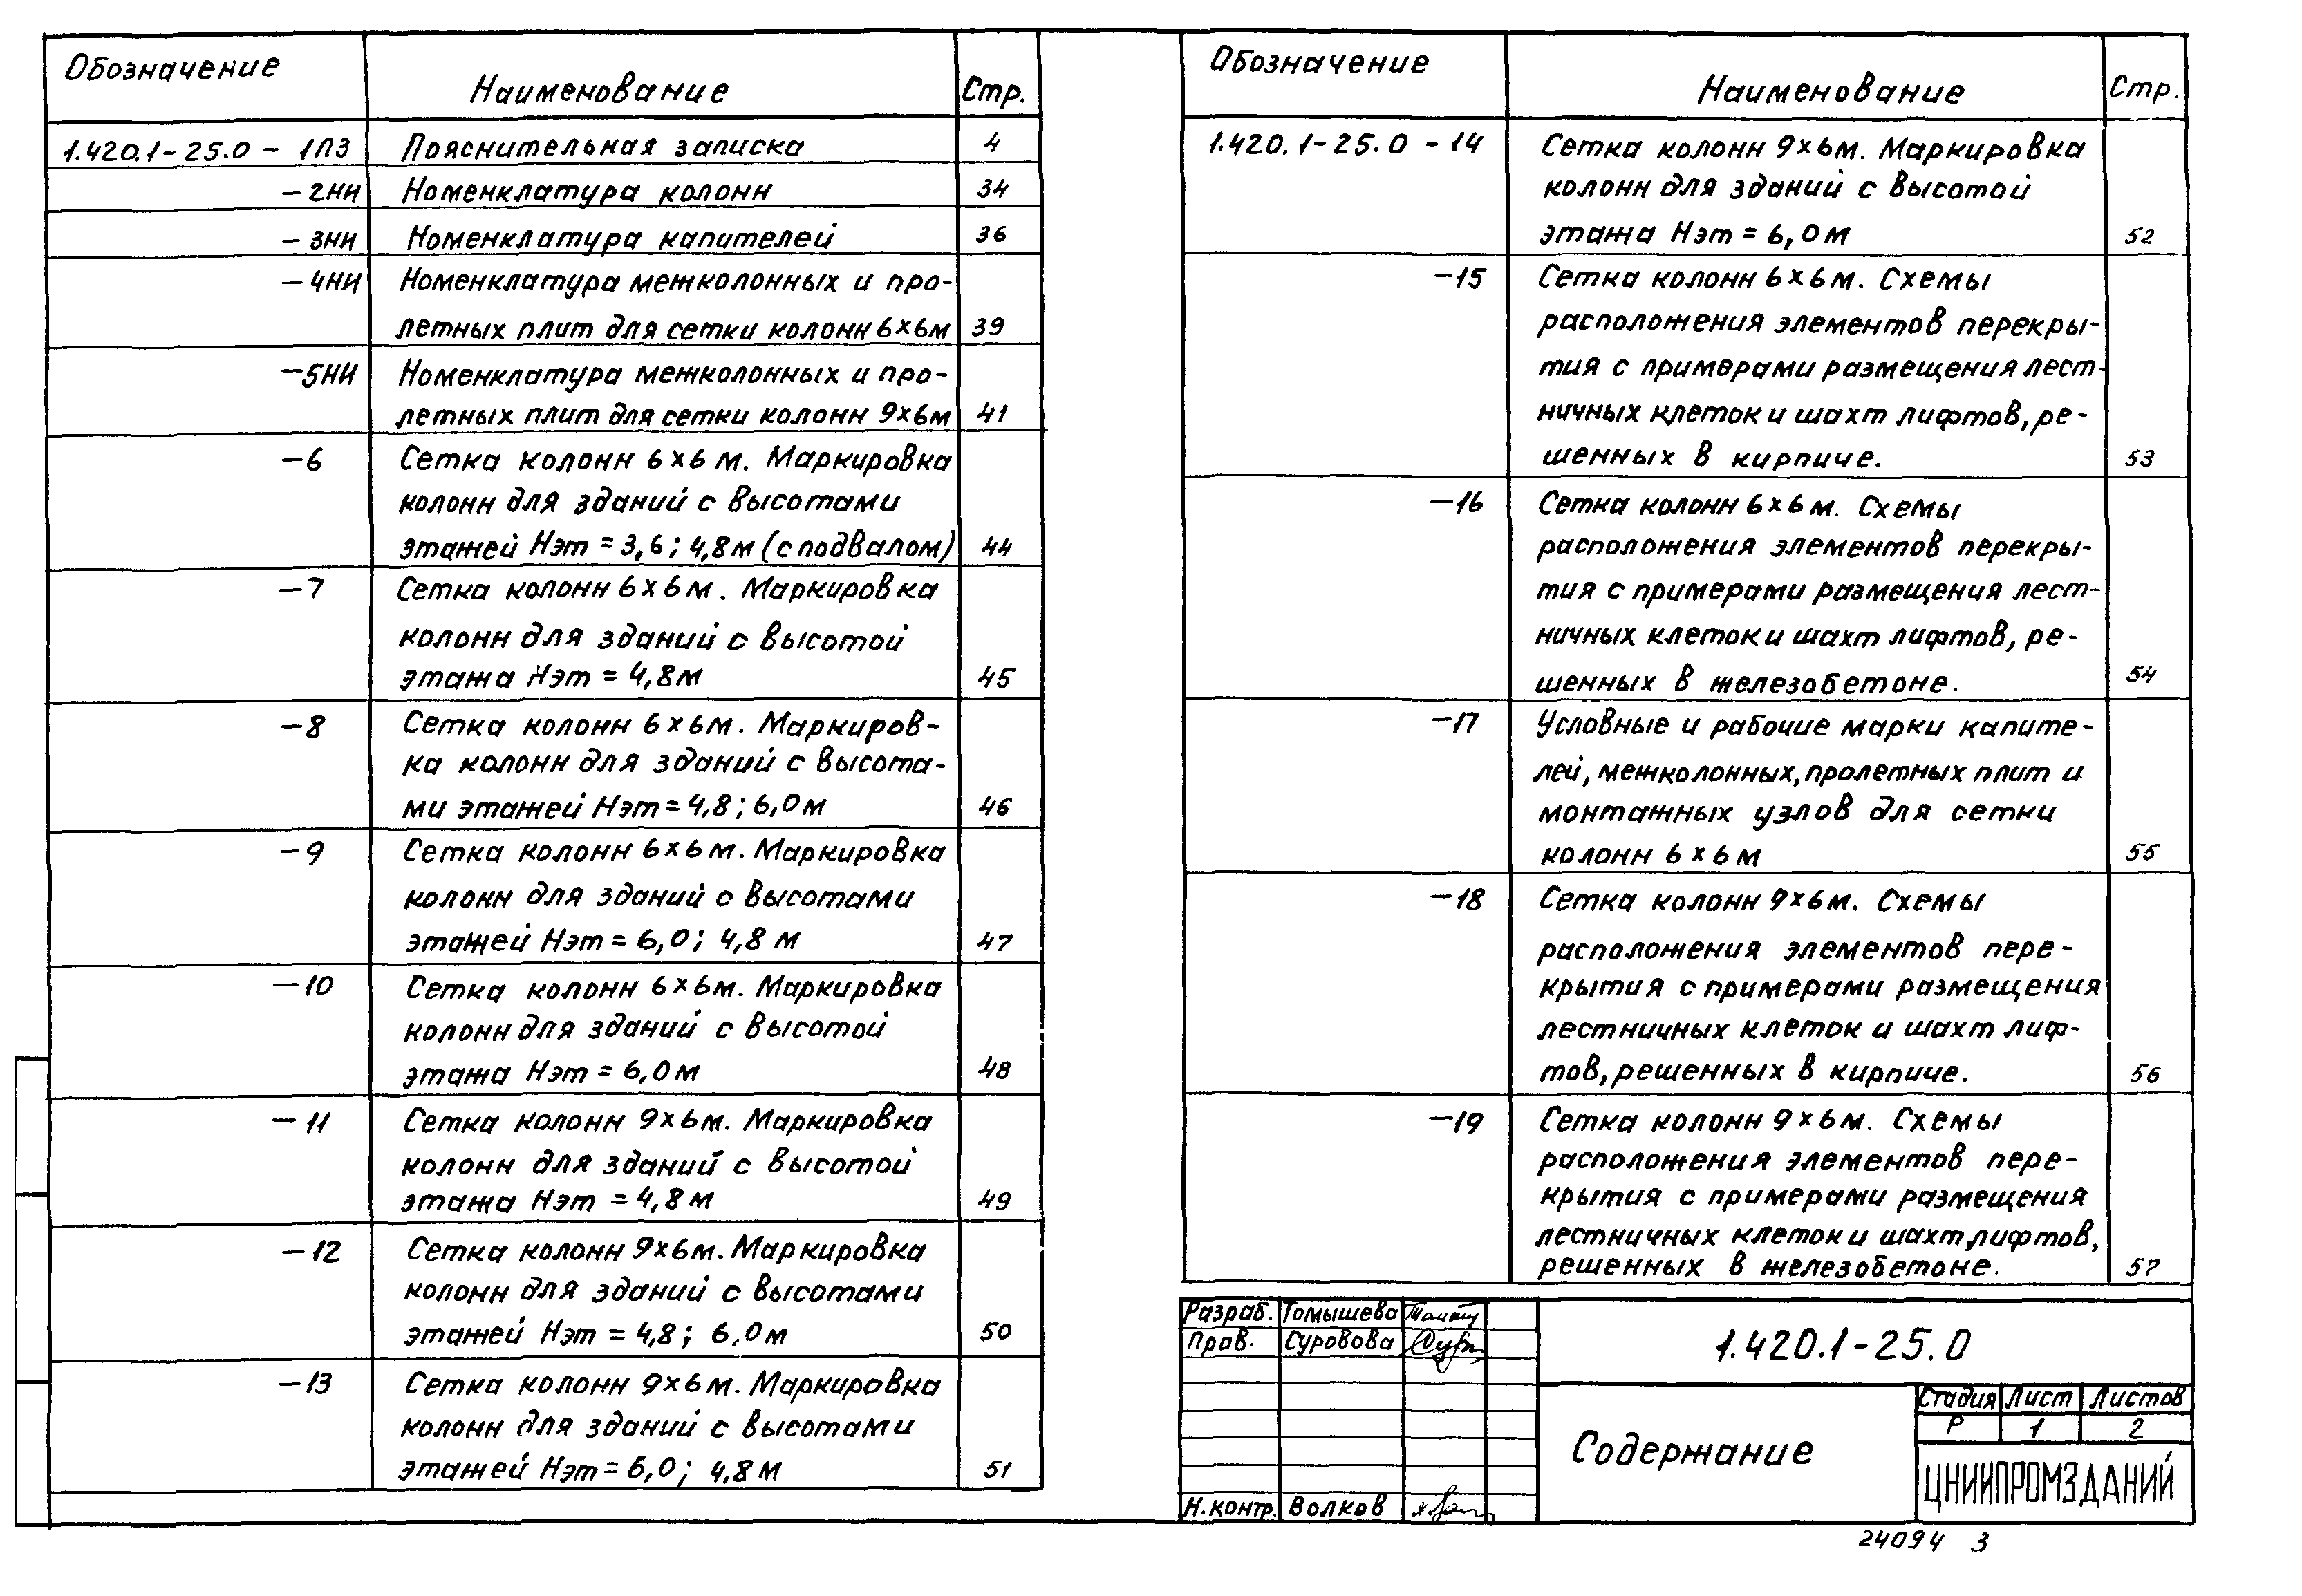 Обозначение Наименование Стр.
1.420.1-25.0 - 1ПЗ Пояснительная записка 4
- 2НИ Номенклатура колонн 34
- 3НИ Номенклатура капителей 36
- 4НИ Номенклатура межколонных и про-
летных плит для сетки колонн 6×6м 39
- 5НИ Номенклатура межколонных и про-
летных плит для сетки колонн 9×6м 41
- 6 Сетка колонн 6×6 м. Маркировка
колонн для зданий с высотами
этажей Нэт = 3,6; 4,8м (с подвалом) 44
- 7 Сетка колонн 6×6м. Маркировка
колонн для зданий с высотой
этажа Нэт = 4,8м 45
- 8 Сетка колонн 6×6м. Маркиров-
ка колонн для зданий с высота-
ми этажей Нэт = 4,8; 6,0м 46
- 9 Сетка колонн 6×6м. Маркировка
колонн для зданий с высотами
этажей Нэт = 6,0; 4,8 м 47
- 10 Сетка колонн 6×6м. Маркировка
колонн для зданий с высотой
этажа Нэт = 6,0м 48
- 11 Сетка колонн 9×6м. Маркировка
колонн для зданий с высотой
этажа Нэт = 4,8м 49
- 12 Сетка колонн 9×6м. Маркировка
колонн для зданий с высотами
этажей Нэт = 4,8; 6,0м 50
- 13 Сетка колонн 9×6м. Маркировка
колонн для зданий с высотами
этажей Нэт = 6,0; 4,8м 51
Обозначение Наименование Стр.
1.420.1-25.0 - 14 Сетка колонн 9×6м. Маркировка
колонн для зданий с высотой
этажа Нэт = 6,0м 52
- 15 Сетка колонн 6×6м. Схемы
расположения элементов перекры-
тия с примерами размещения лест-
ничных клеток и шахт лифтов, ре-
шенных в кирпиче. 53
- 16 Сетка колонн 6×6м. Схемы
расположения элементов перекры-
тия с примерами размещения лест-
ничных клеток и шахт лифтов, ре-
шенных в железобетоне. 54
- 17 Условные и рабочие марки капите-
лей, межколонных, пролетных плит и
монтажных узлов для сетки
колонн 6×6м 55
- 18 Сетка колонн 9×6м. Схемы
расположения элементов пере-
крытия с примерами размещения
лестничных клеток и шахт лиф-
тов, решенных в кирпиче. 56
- 19 Сетка колонн 9×6м. Схемы
расположения элементов пере-
крытия с примерами размещения
лестничных клеток и шахт лифтов,
решенных в железобетоне. 57
Разраб. Томышева
Пров. Суровова
Н.контр. Волков
1.420.1-25.0
Содержание
Стадия Лист Листов
Р 1 2
ЦНИИПРОМЗДАНИЙ
24094 3